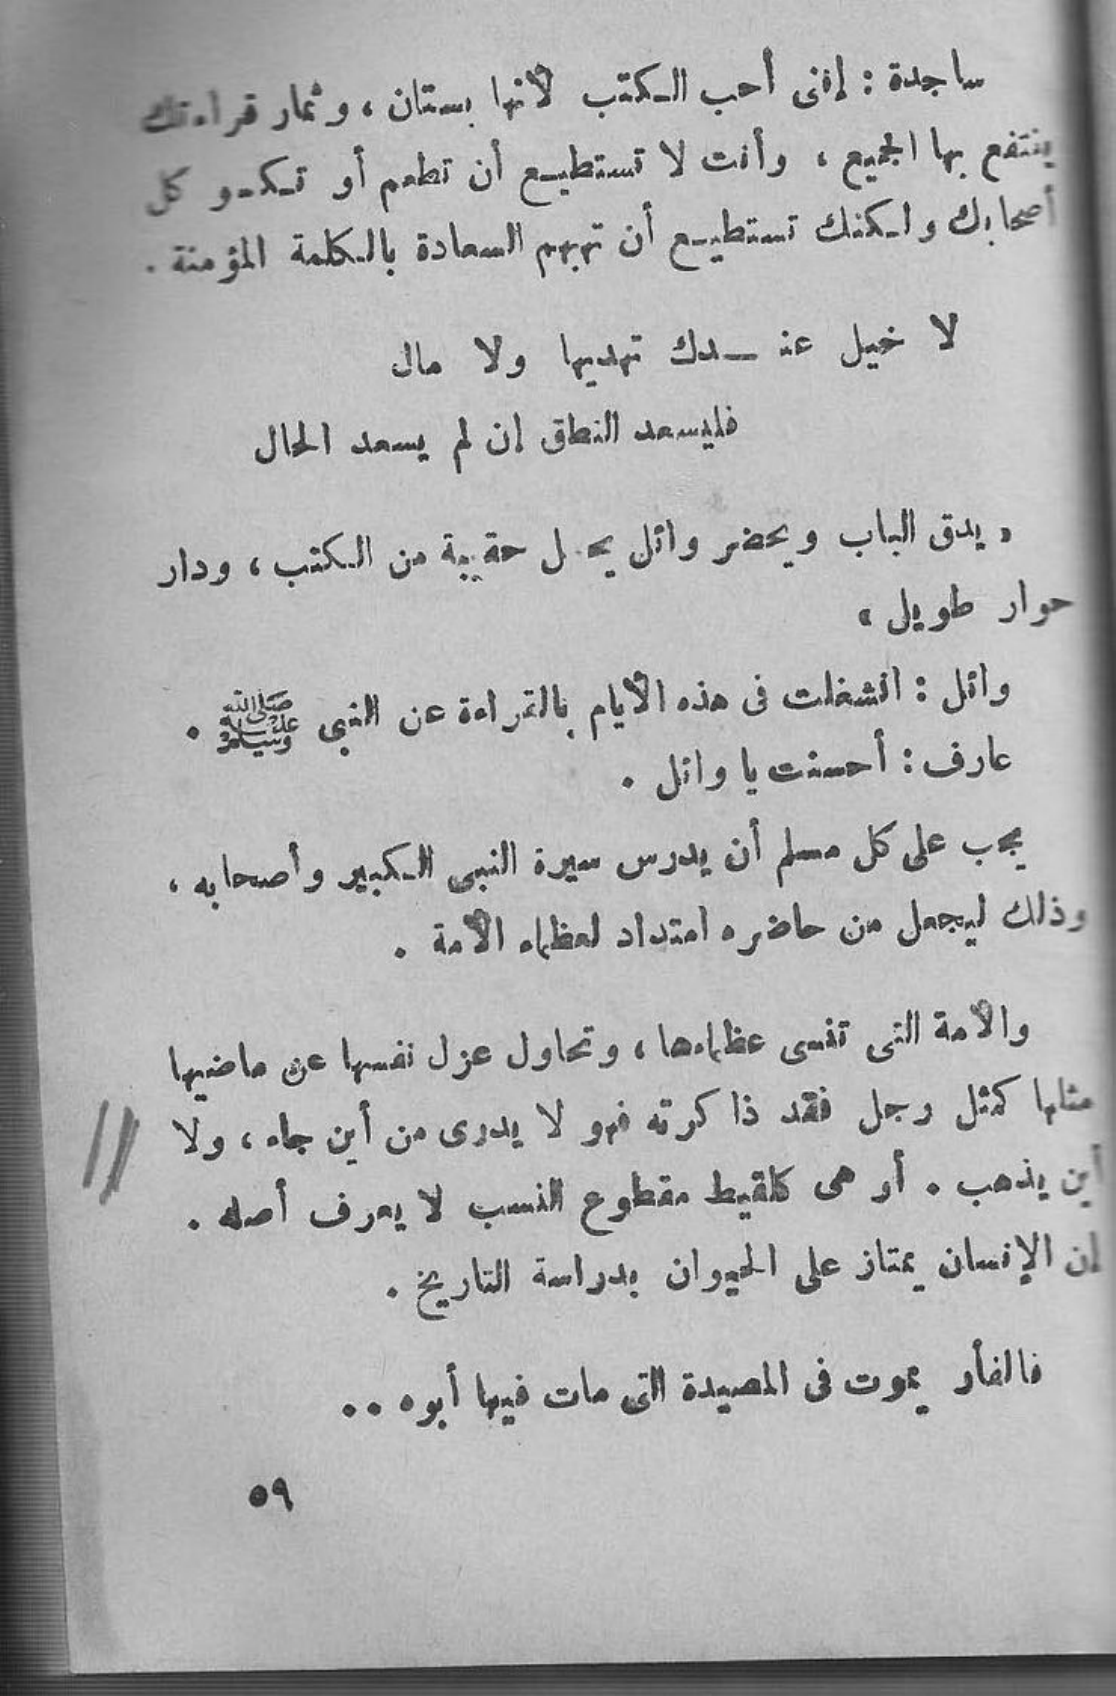 ساجدة : إننى أحب الكتب لأنها بستان ، وثمار قراءتك
ينتفع بها الجميع ، وأنت لا تستطيع أن تطعم أو تكسو كل
أصحابك ولكنك تستطيع أن تهبهم السعادة بالكلمة المؤمنة .
لا خيل عنــدك تهديها ولا مال
فليسعد النطق إن لم يسعد الحال
« يدق الباب ويحضر وائل يحمل حقيبة من الكتب ، ودار
حوار طويل »
وائل : انشغلت فى هذه الأيام بالقراءة عن النبى ﷺ .
عارف : أحسنت يا وائل .
يجب على كل مسلم أن يدرس سيرة النبى الكبير وأصحابه ،
وذلك ليجعل من حاضره امتداد لعظماء الأمة .
والأمة التى تنسى عظماءها ، وتحاول عزل نفسها عن ماضيها
مثلها كمثل رجل فقد ذاكرته فهو لا يدرى من أين جاء ، ولا
أين يذهب . أو هى كلقيط مقطوع النسب لا يعرف أصله .
إن الإنسان يمتاز على الحيوان بدراسة التاريخ .
فالفأر يموت فى المصيدة التى مات فيها أبوه ..
٥٩